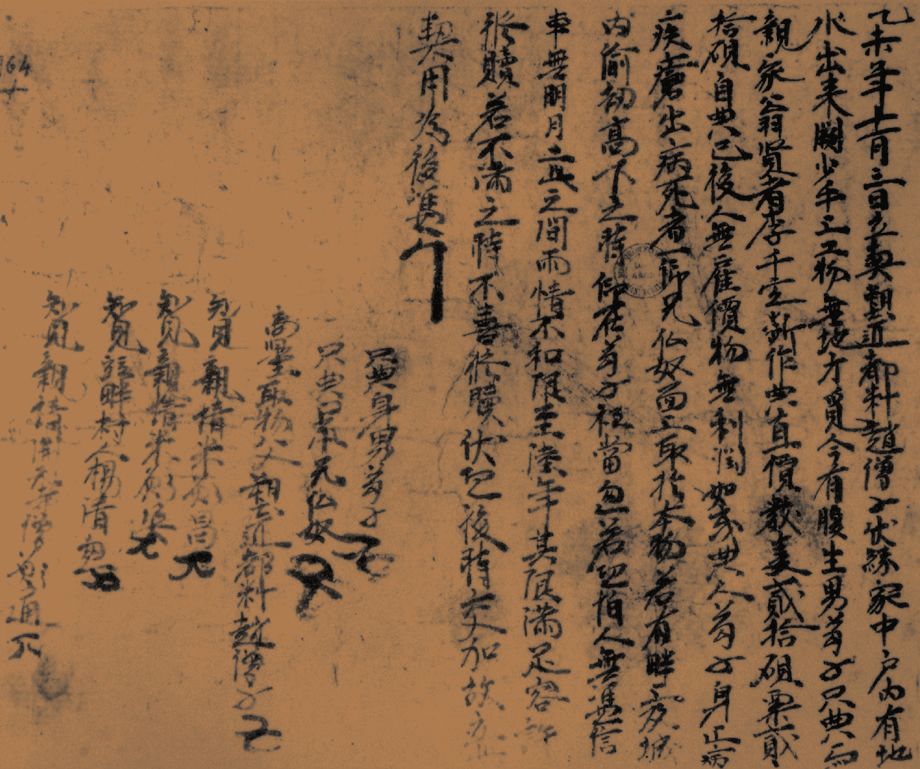 乙未年十一月三日立契塑匠都料趙僧子伏緣家中戶內有地
水出來闕少手上工物無地方覓今有腹生男苟子只典与
親家翁賢者李千定斷作典直價數麦貳拾碩粟貳
拾碩自典已後人無雇價物無利潤如或典人苟子身上病
疾瘡出病死者一仰兄佛奴面上取於本物若有畔上城
內偷劫高下之時仰在苟子祗當忽若恐怕人無憑信
車無明月二此之間兩情不和限至陸年其限滿足容許
修贖若不滿之時不喜修贖伏恐後時交加故立
契用為後憑
只典身男苟子
只典口承兄佛奴
商量取物父塑匠都料趙僧子
知見親情米
知見親情米
知見 畔村人楊清忽
知見親情開元寺僧 通